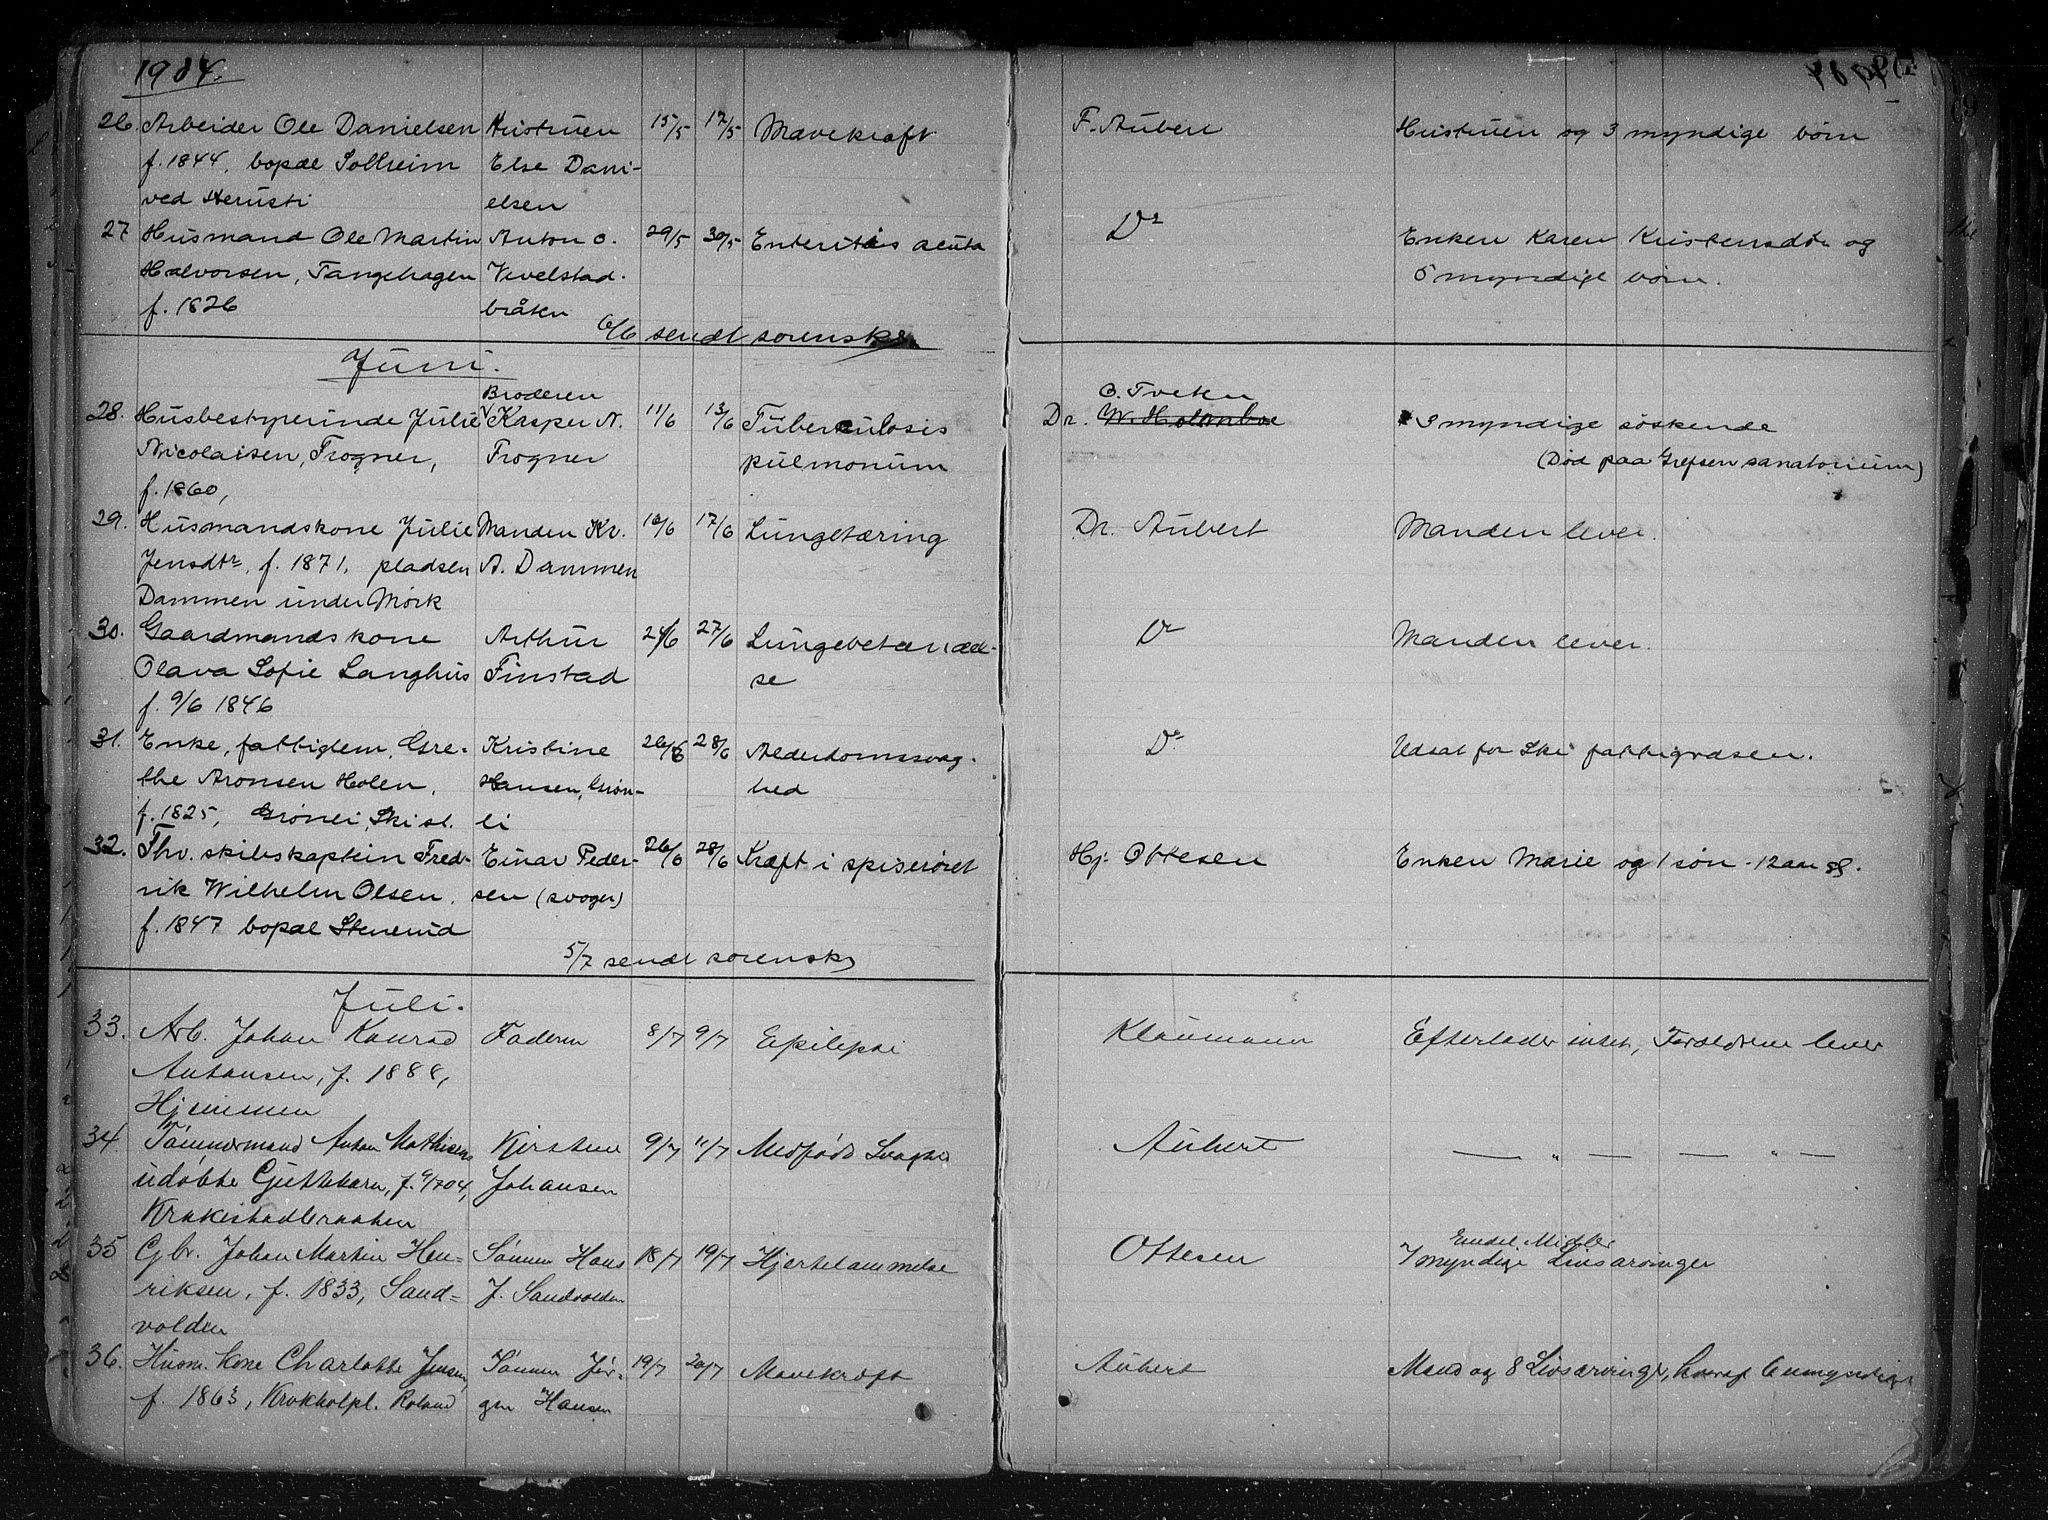 1904.
26. Arbeider Ole Danielsen Hustruen 15/5 17/5 Mavekræft F. Aubert Hustruen og 3 myndige børn
f. 1844, bopæl Solheim Else Dani-
ved Herusti elsen
27 Husmand Ole Martin Anton O. 29/5 30/5 Enteritis acuta Do Enken Karen Kristensdtr og
Halvorsen, Tangehagen Vevelstad- 5 myndige børn.
f. 1826 bråten
6/6 sendt sorenskr.
Juni.
Broderen O. Tveten
28. Husbestyrerinde Julie Kasper N. 11/6 13/6 Tuberculosis Dr. W. Holmboe 3 myndige søskende
Nicolaisen, Frogner, Frogner pulmonum (Død paa Grefsen sanatorium)
f. 1860,
29. Husmandskone Julie Manden Kr. 17/6 Lungetæring Dr. Aubert Manden lever.
Jensdtr, f. 1871, pladsen A. Dammen
Dammen under Mørk
30. Gaardmandskone Arthur 24/6 27/6 Lungebetændel- Do Manden lever.
Olava Sofie Langhus Finstad se
f. 9/6 1846
31. Enke, fattiglem, Gre- Kristine 26/6 28/6 Alderdomssvag- Do Udsat for Ski fattigvæsen.
the Aronsen Holen, Hansen, Grøn- hed
f. 1825, Grønli, Ski st. li
32. Fhv. skibskaptein Fred- Einar Peder- 26/6 28/6 Kræft i spiserøret Hj. Ottesen Enken Marie og 1 søn - 12 aar gl.
rik Wilhelm Olsen, sen (svoger)
f. 1847 bopæl Stenerud
5/7 sendt sorenskr
Juli.
33. Arb. Johan Konrad Faderen 8/7 9/7 Epilepsi Klaumann Efterlader intet, Forældrene lever
Antonsen, f. 1888,
Hjemmen
34. Tømmermand Anton Mathisens Kjersten 9/7 11/7 Medfødt Svaghed Aubert — „ — — „ —
udøbte Guttebarn, f. 9/7 04, Johansen
Krakestadbraaten
Endel Midler
35 Gbr. Johan Martin Hen- Sønnen Hans 18/7 19/7 Hjertelammelse Ottesen 7 myndige Livsarvinger
riksen, f. 1833, Sand- J. Sandvolden
volden
36. Husm. kone Charlotte Jensen, Sønnen Jør- 19/7 20/7 Mavekræft Aubert Mand og 8 Livsarvinger, hvoraf 6 umyndige
f. 1863, Krokholpl. gen Hansen